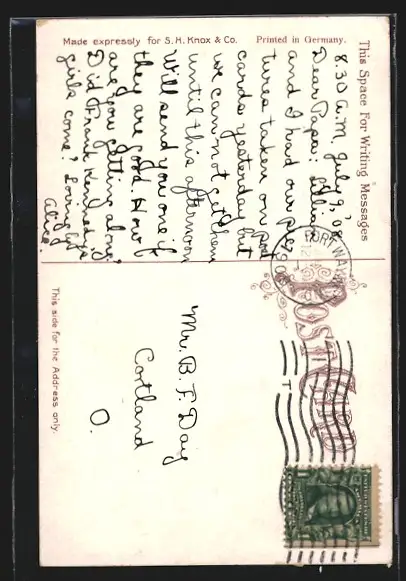 Made expressly for S. H. Knox & Co. Printed in Germany.
This Space For Writing Messages
8.30 A.M. July 9, '08
Dear Papa: Lillian
and I had our pic-
tures taken on post
cards yesterday but
we can not get them
until this afternoon
Will send you one if
they are good. How
are you getting along?
Did Frank Kennedy's
girls come? Lovingly,
Alice.
FORT WAYNE
POST CARD
Mr. B. F. Day
Cortland
O.
This side for the Address only.